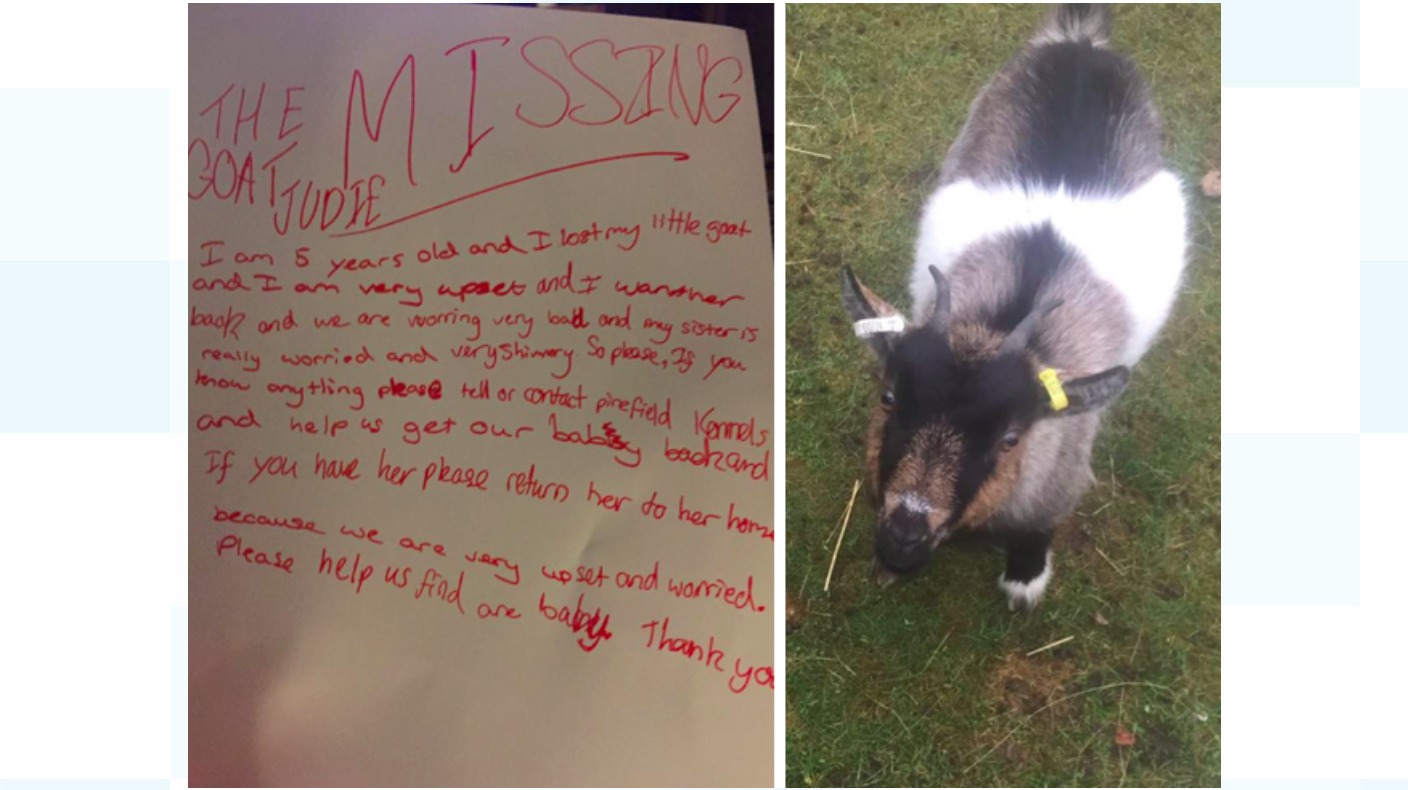 THE MISSING
GOAT
JUDIE
I am 5 years old and I lost my little goat
and I am very upset and I wanther
back and we are worring very bad and my sister is
really worried and very shimery. So please, If you
know anytling please tell or contact pinefield Kennels
and help us get our baby back and
If you have her please return her to her home
because we are very upset and worried.
Please help us find are baby. Thank you